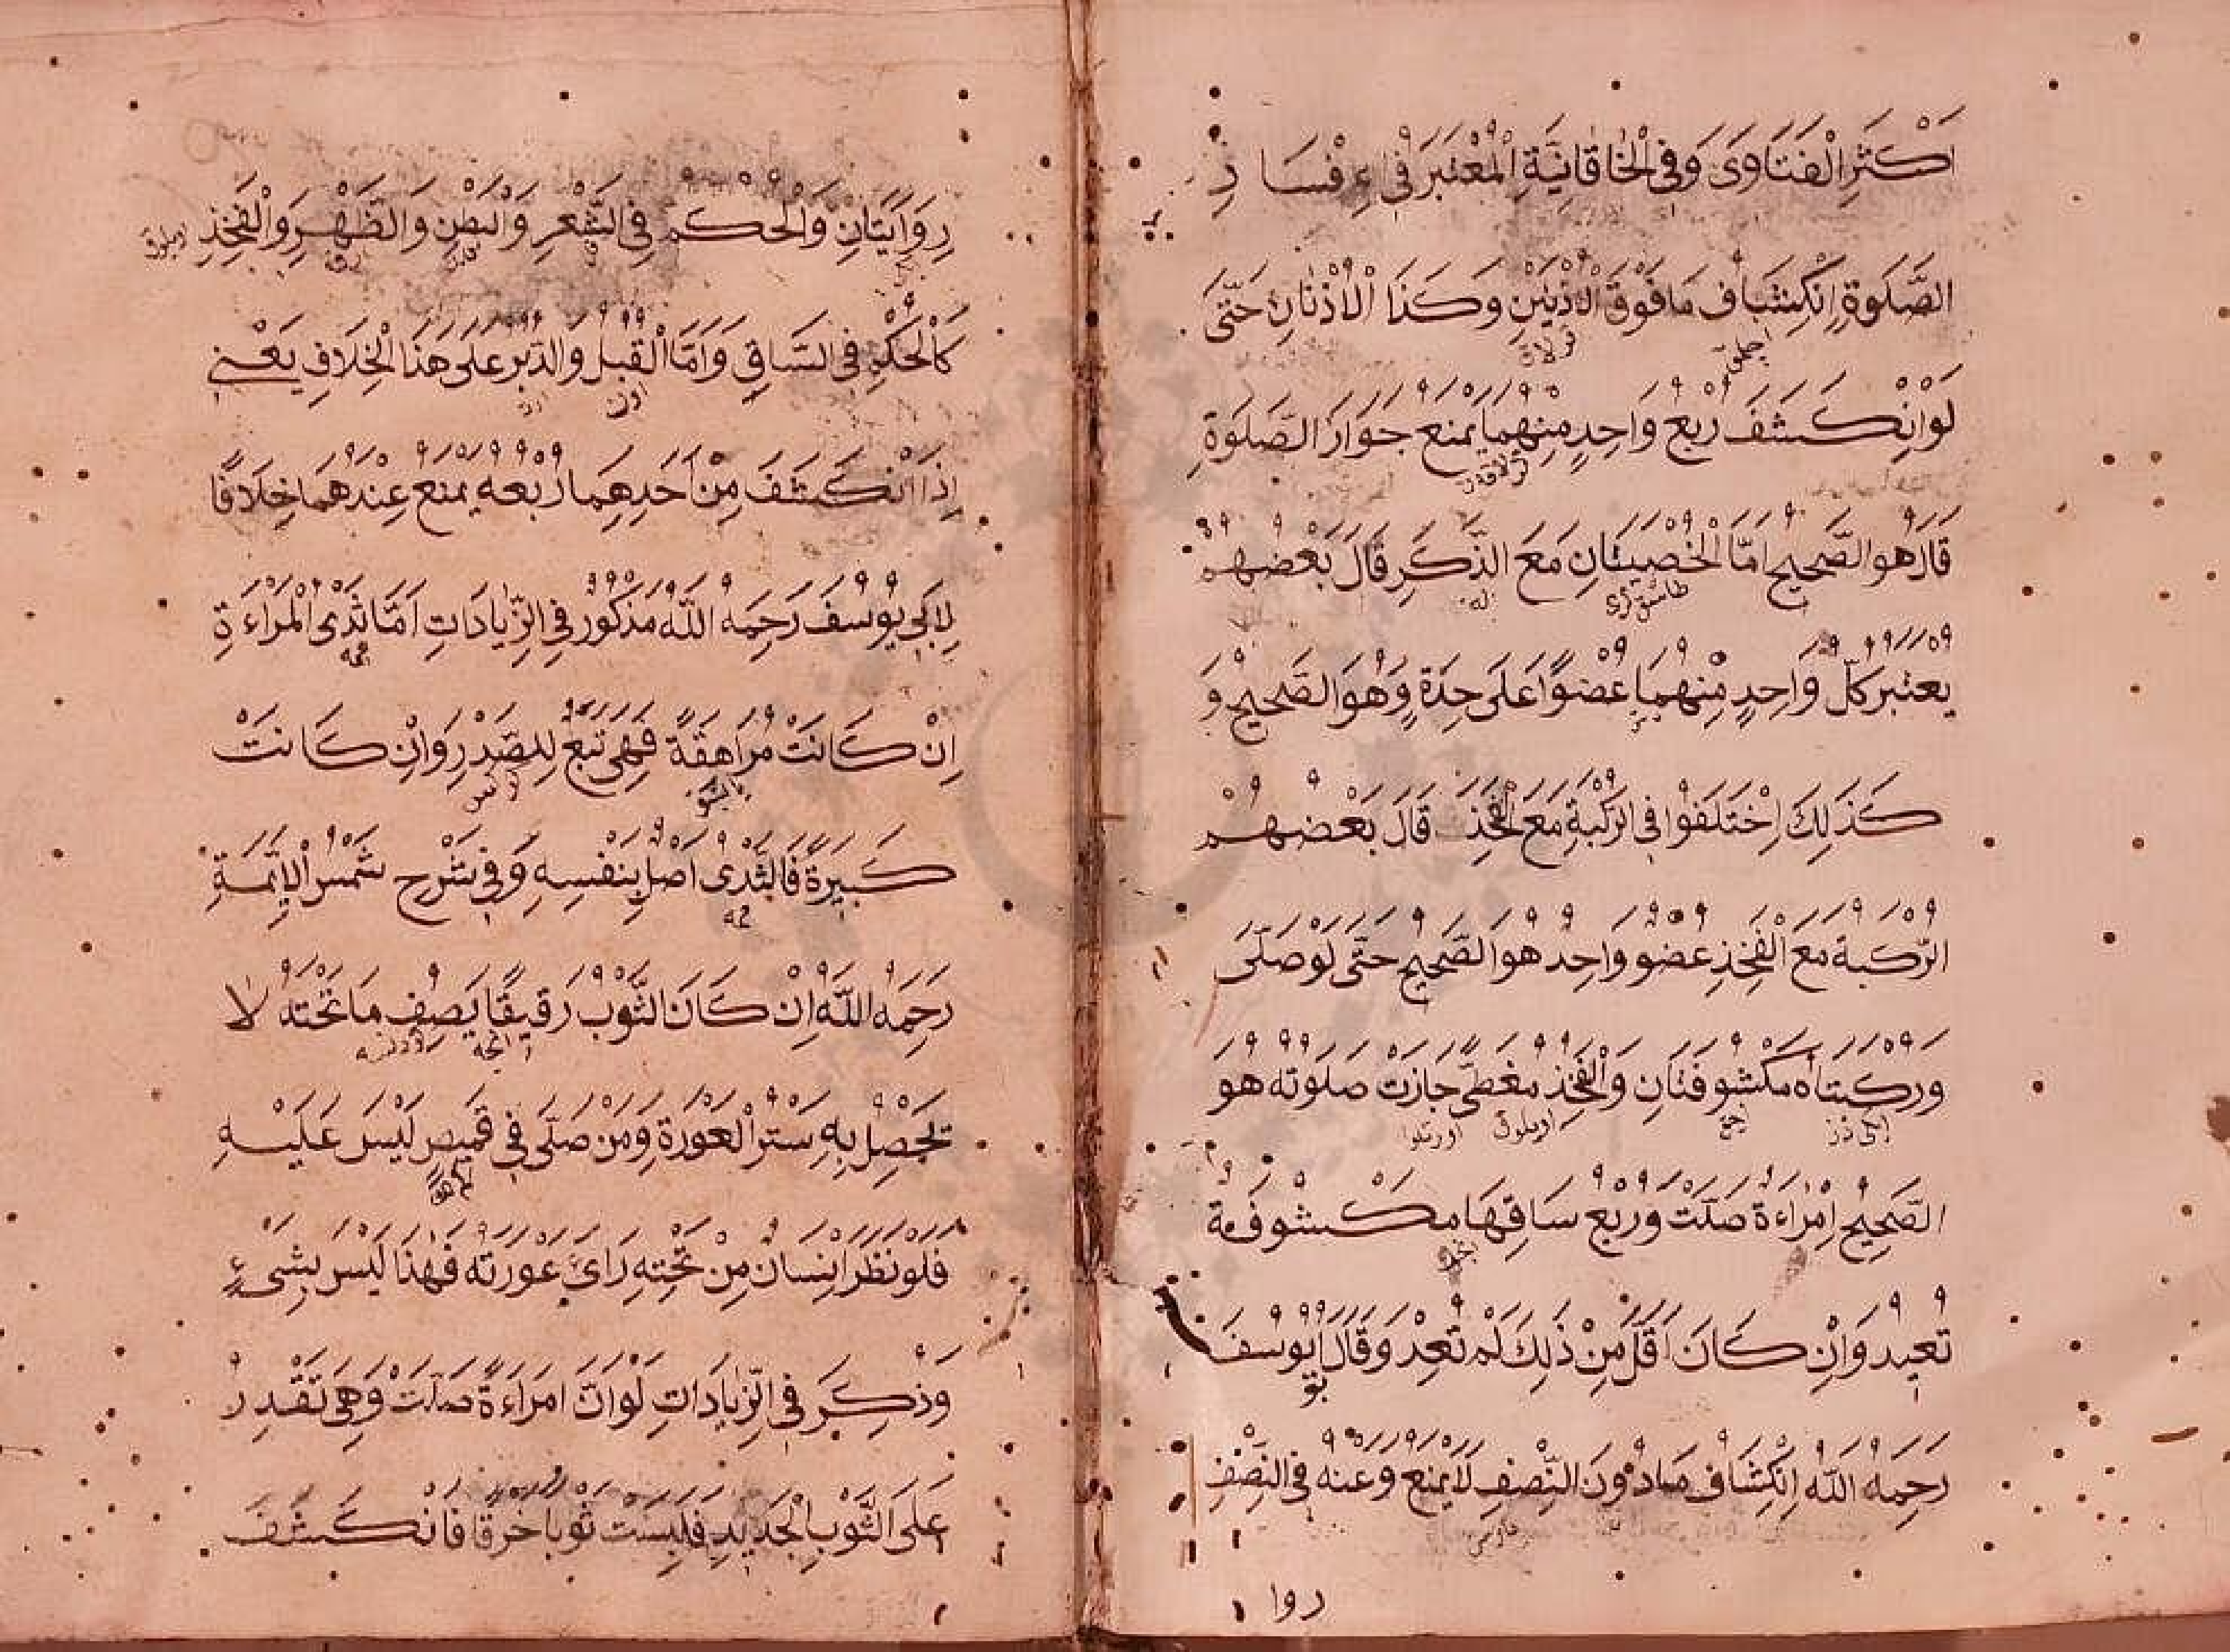 اَكْثَرِ الْفَتَاوَى وَفِى الْخَاقَانِيَّةِ الْمُعْتَبَرُ فِى ءِفْسَادِ
الصَّلَوةِ اِنْكِشَافُ مَا فَوْقَ الْاُذُنَيْنِ وَكَذَا الْاُذْنَانِ حَتّٰى
لَوِ انْكَشَفَ رُبْعُ وَاحِدٍ مِنْهُمَا يَمْنَعُ جَوَازَ الصَّلَوةِ
قَالَ هُوَ الصَّحِيحُ اَمَّا الْخُصْيَتَانِ مَعَ الذَّكَرِ قَالَ بَعْضُهُمْ
يُعْتَبَرُ كُلُّ وَاحِدٍ مِنْهُمَا عُضْوًا عَلَى حِدَةٍ وَهُوَ الصَّحِيحُ وَ
كَذَلِكَ اِخْتَلَفُوْا فِى الرُّكْبَةِ مَعَ الْفَخِذِ قَالَ بَعْضُهُمْ
الرُّكْبَةُ مَعَ الْفَخِذِ عُضْوٌ وَاحِدٌ هُوَ الصَّحِيحُ حَتّٰى لَوْ صَلَّى
وَرُكْبَتَاهُ مَكْشُوفَتَانِ وَالْفَخِذُ مُغَطًّى جَازَتْ صَلَوتُهُ هُوَ
الصَّحِيحُ اِمْرَاءَةٌ صَلَّتْ وَرُبْعُ سَاقِهَا مَكْشُوفَةٌ
تُعِيدُ وَاِنْ كَانَ اَقَلَّ مِنْ ذَلِكَ لَمْ تُعِدْ وَقَالَ اَبُو يُوسُفَ
رَحِمَهُ اللّٰهُ اِنْكِشَافُ مَا دُوْنَ النِّصْفِ لَا يَمْنَعُ وَعَنْهُ فِى النِّصْفِ
روا
رِوَايَتَانِ وَالْحُكْمُ فِى الشَّعْرِ وَالْبَطْنِ وَالظَّهْرِ وَالْفَخِذِ
كَالْحُكْمِ فِى السَّاقِ وَاَمَّا الْقُبُلُ وَالدُّبُرُ عَلَى هَذَا الْخِلَافِ يَعْنِى
اِذَا انْكَشَفَ مِنْ اَحَدِهِمَا رُبْعُهُ يَمْنَعُ عِنْدَهُمَا خِلَافًا
لِاَبِى يُوسُفَ رَحِمَهُ اللّٰهُ مَذْكُوْرٌ فِى الزِّيَادَاتِ اَمَّا ثَدْىُ الْمَرْاءَةِ
اِنْ كَانَتْ مُرَاهِقَةً فَهِىَ تَبَعٌ لِلصَّدْرِ وَاِنْ كَانَتْ
كَبِيرَةً فَالثَّدْىُ اَصْلٌ بِنَفْسِهِ وَفِى شَرْحِ شَمْسُ الْاَئِمَّةِ
رَحِمَهُ اللّٰهُ اِنْ كَانَ الثَّوْبُ رَقِيقًا يَصِفُ مَا تَحْتَهُ لَا
يَحْصُلُ بِهِ سَتْرُ الْعَوْرَةِ وَمَنْ صَلَّى فِى قَمِيصٍ لَيْسَ عَلَيْهِ
فَلَوْ نَظَرَ اِنْسَانٌ مِنْ تَحْتِهِ رَاىَ عَوْرَتَهُ فَهٰذَا لَيْسَ بِشَىْءٍ
وَذُكِرَ فِى الزِّيَادَاتِ لَوْ اَنَّ امْرَاءَةً صَلَّتْ وَهِىَ تَقْدِرُ
عَلَى الثَّوْبِ الْجَدِيدِ فَلَبِسَتْ ثَوْبًا خَرَقًا فَانْكَشَفَ